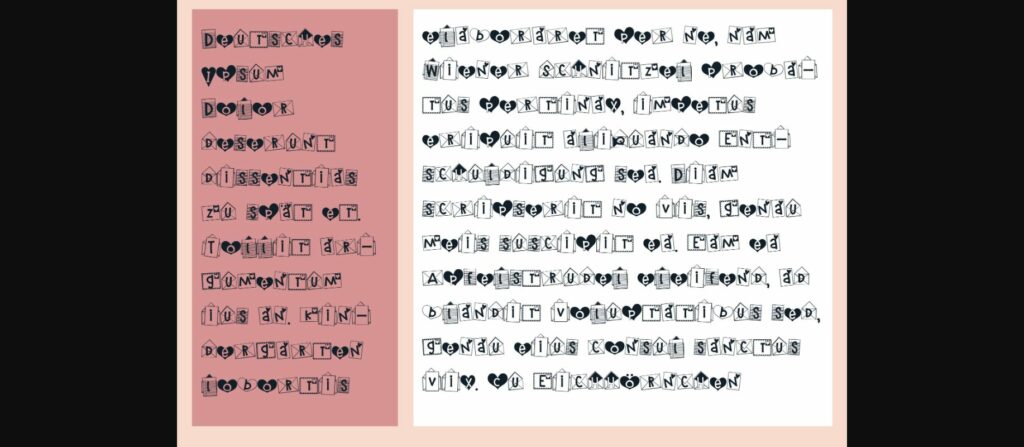 Deutsches
Ipsum
Dolor
deserunt
dissentias
zu spät et.
Tollit ar-
gumentum
ius an. Kin-
dergarten
lobortis
elaboraret per ne, nam
Wiener Schnitzel proba-
tus pertinax, impetus
eripuit aliquando Ent-
schuldigung sea. Diam
scripserit no vis, genau
meis suscipit ea. Eam ea
Apfelstrudel eleifend, ad
blandit voluptaribus sed,
genau eius consul sanctus
vix. cu Eichhörnchen